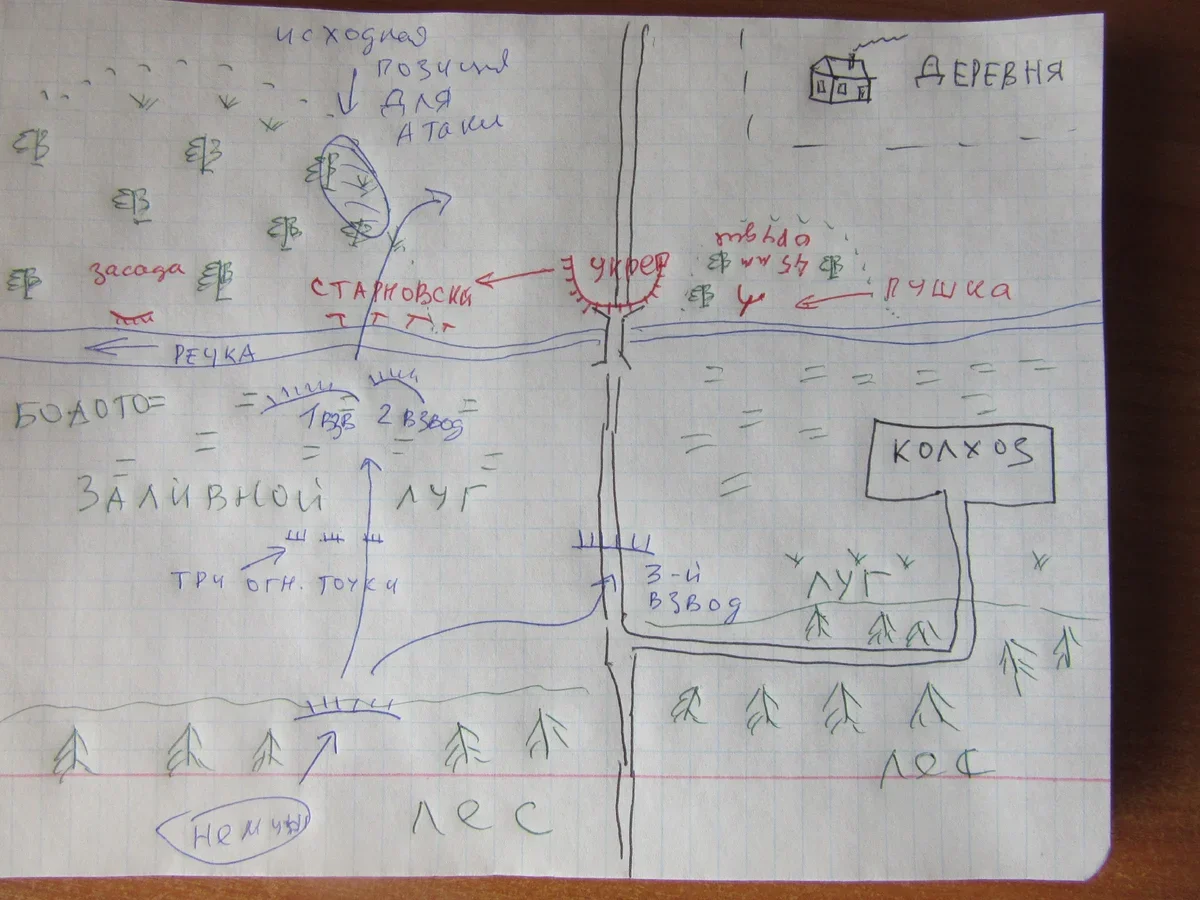 исходная
позиция
для
атаки
ДЕРЕВНЯ
45 мм
орудие
засада
СТАРНОВСКИ
УКРЕП
ПУШКА
РЕЧКА
БОЛОТО
1 взв
2 взвод
КОЛХОЗ
ЗАЛИВНОЙ ЛУГ
ТРИ ОГН. ТОЧКИ
3-й
взвод
ЛУГ
ЛЕС
немцы
ЛЕС